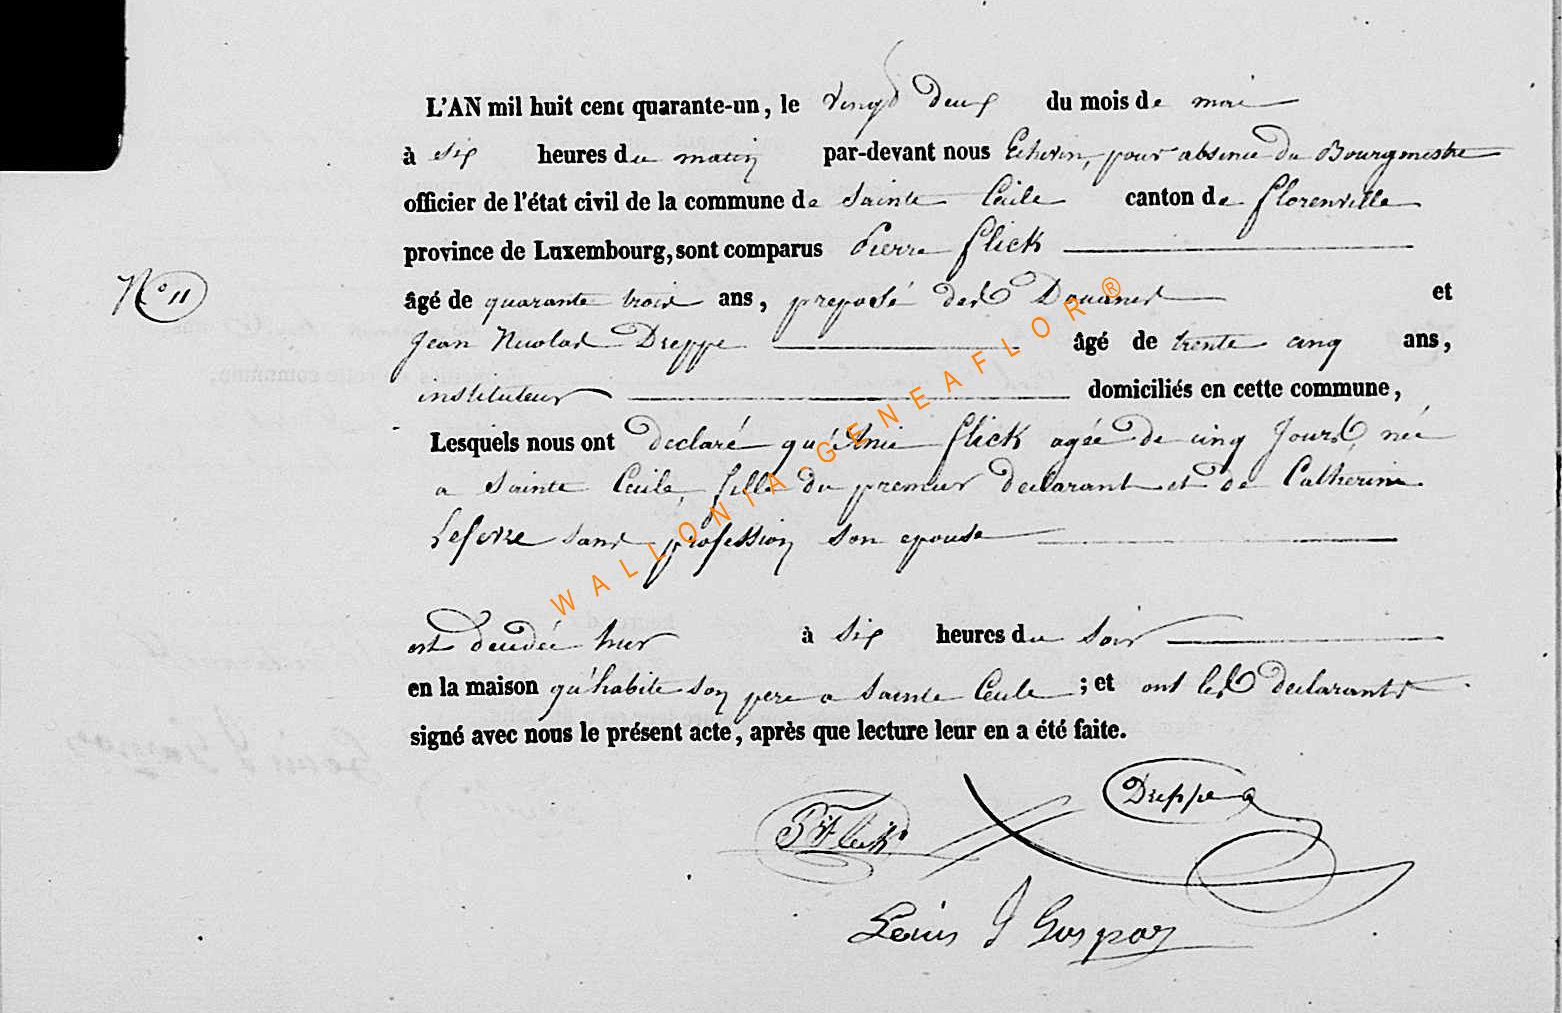 L'AN mil huit cent quarante-un, le vingt deux du mois de mai
à six heures du matin par-devant nous Echevin, pour absence du Bourgmestre
officier de l'état civil de la commune de Sainte Cecile canton de florenville
province de Luxembourg, sont comparus Pierre flick
N° 11
âgé de quarante trois ans, preposé des Douanes et
Jean Nicolas Dreppe âgé de trente cinq ans,
instituteur domiciliés en cette commune,
Lesquels nous ont declaré qu' flick agée de cinq jours, née
a Sainte Cecile, fille du premier declarant et de Catherine
Lefevre sans profession son epouse
est decedée hier à six heures du soir
en la maison qu'habite son pere a Sainte Cecile ; et ont les declarants
signé avec nous le présent acte, après que lecture leur en a été faite.
Dreppe
P Flick
Louis J Gospar
WALLONIA-GENEAFLOR®